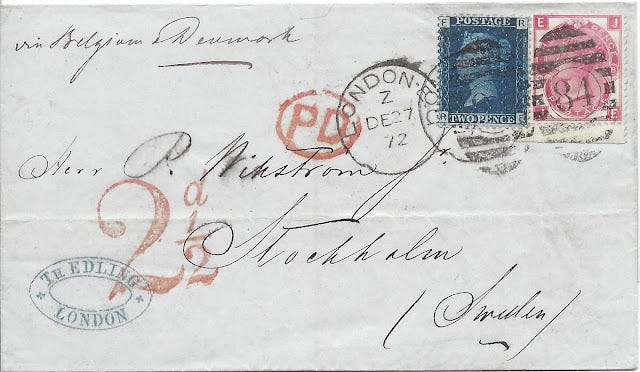 via Belgium & Denmark
POSTAGE
F R
R F
TWO PENCE
E J
J E
PENCE
LONDON-E.C
Z
DE 27
72
84
PD
Herr P. Wikström Jr.
2 d 1/2
Stockholm
(Sweden)
TH EDLING
LONDON